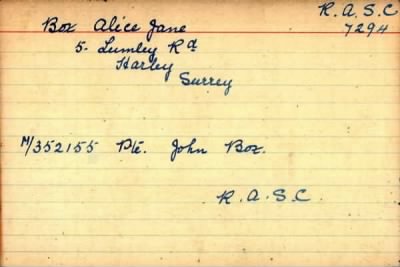 R.A.S.C
Box Alice Jane 7294
5. Lumley Rd
Horley
Surrey
M/352155 Pte. John Box.
R.A.S.C.